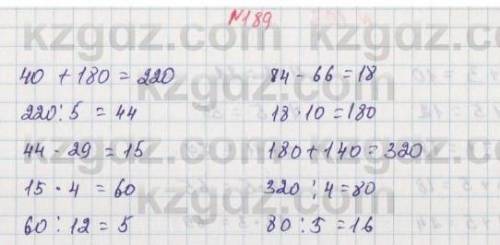 №189
40 + 180 = 220
220 : 5 = 44
44 - 29 = 15
15 · 4 = 60
60 : 12 = 5
84 - 66 = 18
18 · 10 = 180
180 + 140 = 320
320 : 4 = 80
80 : 5 = 16
kzgdz.com
kzgdz.com